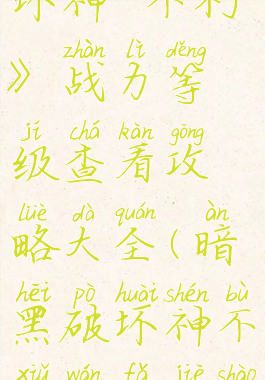 坏神 不朽
zhàn lì děng
》战力等
jí chá kàn gōng
级查看攻
lüè dà quán àn
略大全(暗
hēi pò huài shén bù
黑破坏神不
xiǔ wán fǎ jiè shào